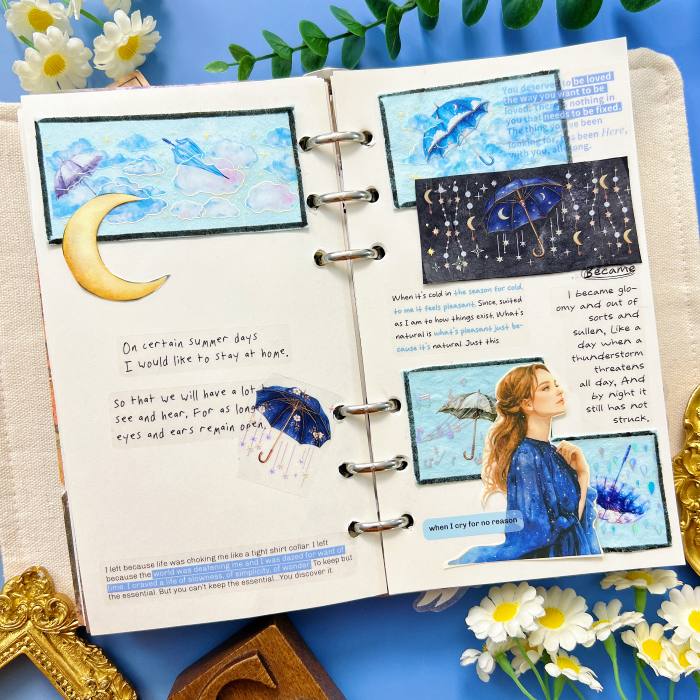 On certain summer days
I would like to stay at home.
So that we will have a lot t
see and hear. For as long
eyes and ears remain open,
I left because life was choking me like a tight shirt collar. I left
because the world was deafening me and I was dazed for want of
time. I craved a life of slowness, of simplicity, of wonder. To keep but
the essential. But you can't keep the essential... You discover it.
You deserve to be loved
the way you want to be
loved. There nothing in
you that needs to be fixed.
The thing you've been
looking for has been Here,
with you, all along.
Became
When it's cold in the season for cold,
to me it feels pleasant. Since, suited
as I am to how things exist, What's
natural is what's pleasant just be-
cause it's natural. Just this
I became glo-
omy and out of
sorts and
sullen, Like a
day when a
thunderstorm
threatens
all day, And
by night it
still has not
struck.
when I cry for no reason